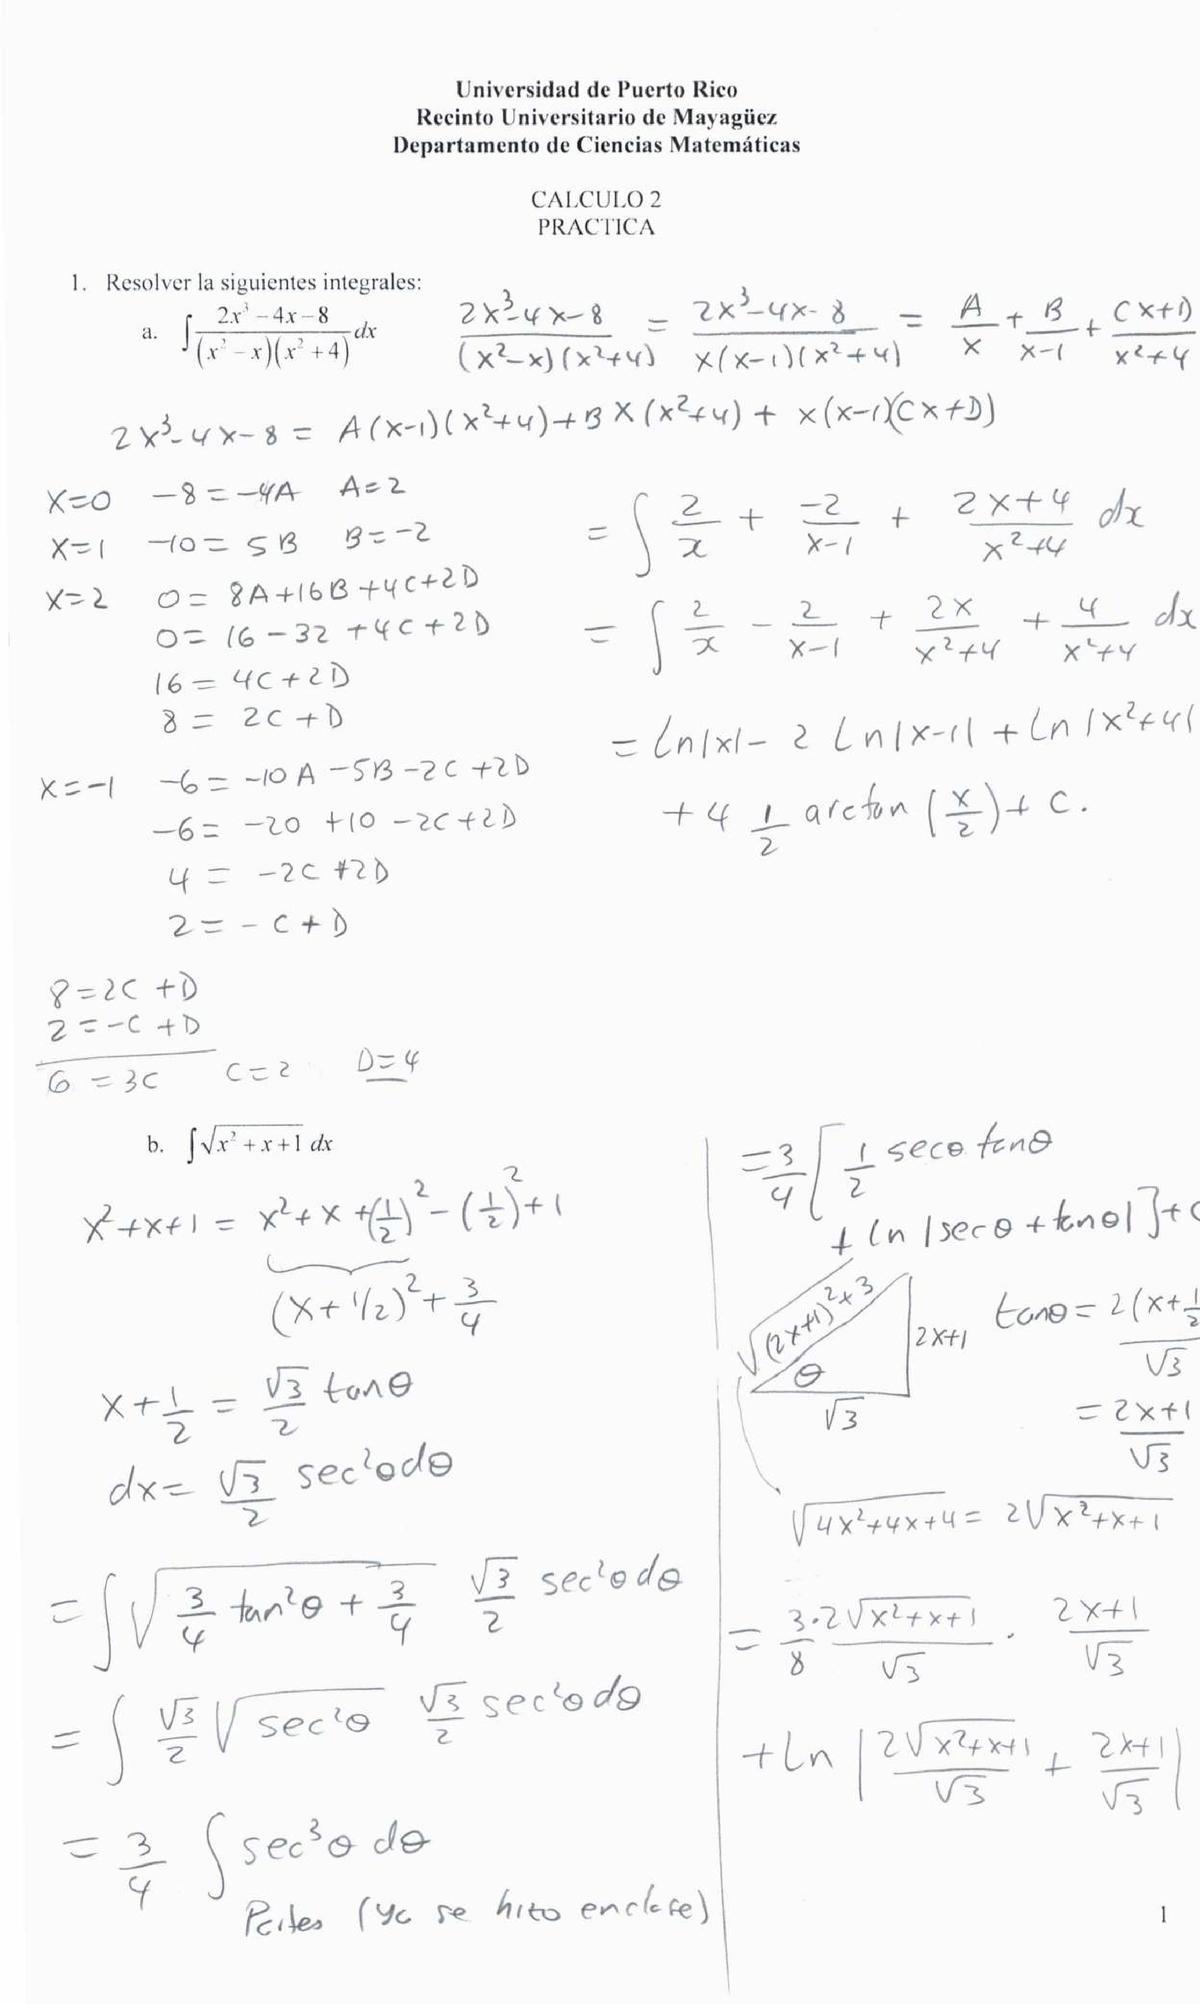 Universidad de Puerto Rico
Recinto Universitario de Mayagüez
Departamento de Ciencias Matemáticas
CALCULO 2
PRACTICA
1. Resolver la siguientes integrales:
a. ∫ (2x³ − 4x − 8)/((x² − x)(x² + 4)) dx
(2x³−4x−8)/((x²−x)(x²+4)) = (2x³−4x−8)/(x(x−1)(x²+4)) = A/x + B/(x−1) + (Cx+D)/(x²+4)
2x³−4x−8 = A(x−1)(x²+4)+Bx(x²+4) + x(x−1)(Cx+D)
x=0 −8=−4A A=2
x=1 −10=5B B=−2
x=2 0=8A+16B+4C+2D
0=16−32+4C+2D
16=4C+2D
8=2C+D
x=−1 −6=−10A−5B−2C+2D
−6=−20+10−2C+2D
4=−2C+2D
2=−C+D
8=2C+D
2=−C+D
6=3C C=2 D=4
= ∫ 2/x + −2/(x−1) + (2x+4)/(x²+4) dx
= ∫ 2/x − 2/(x−1) + 2x/(x²+4) + 4/(x²+4) dx
= Ln|x| − 2 Ln|x−1| + Ln|x²+4|
+ 4 1/2 arctan (x/2) + C.
b. ∫√(x² + x + 1) dx
x²+x+1 = x²+x+(1/2)² − (1/2)² + 1
(x+1/2)² + 3/4
x+1/2 = √3/2 tanθ
dx = √3/2 sec²θdθ
= ∫√(3/4 tan²θ + 3/4) √3/2 sec²θdθ
= ∫ √3/2 √(sec²θ) √3/2 sec²θdθ
= 3/4 ∫ sec³θ dθ
Partes (ya se hizo en clase)
= 3/4 [1/2 secθ tanθ
+ Ln |secθ + tanθ|]+C
√((2x+1)²+3)
2x+1
θ
√3
tanθ = 2(x+1/2)/√3
= (2x+1)/√3
√(4x²+4x+4) = 2√(x²+x+1)
= 3/8 · 2√(x²+x+1)/√3 · (2x+1)/√3
+ Ln |2√(x²+x+1)/√3 + (2x+1)/√3|
1